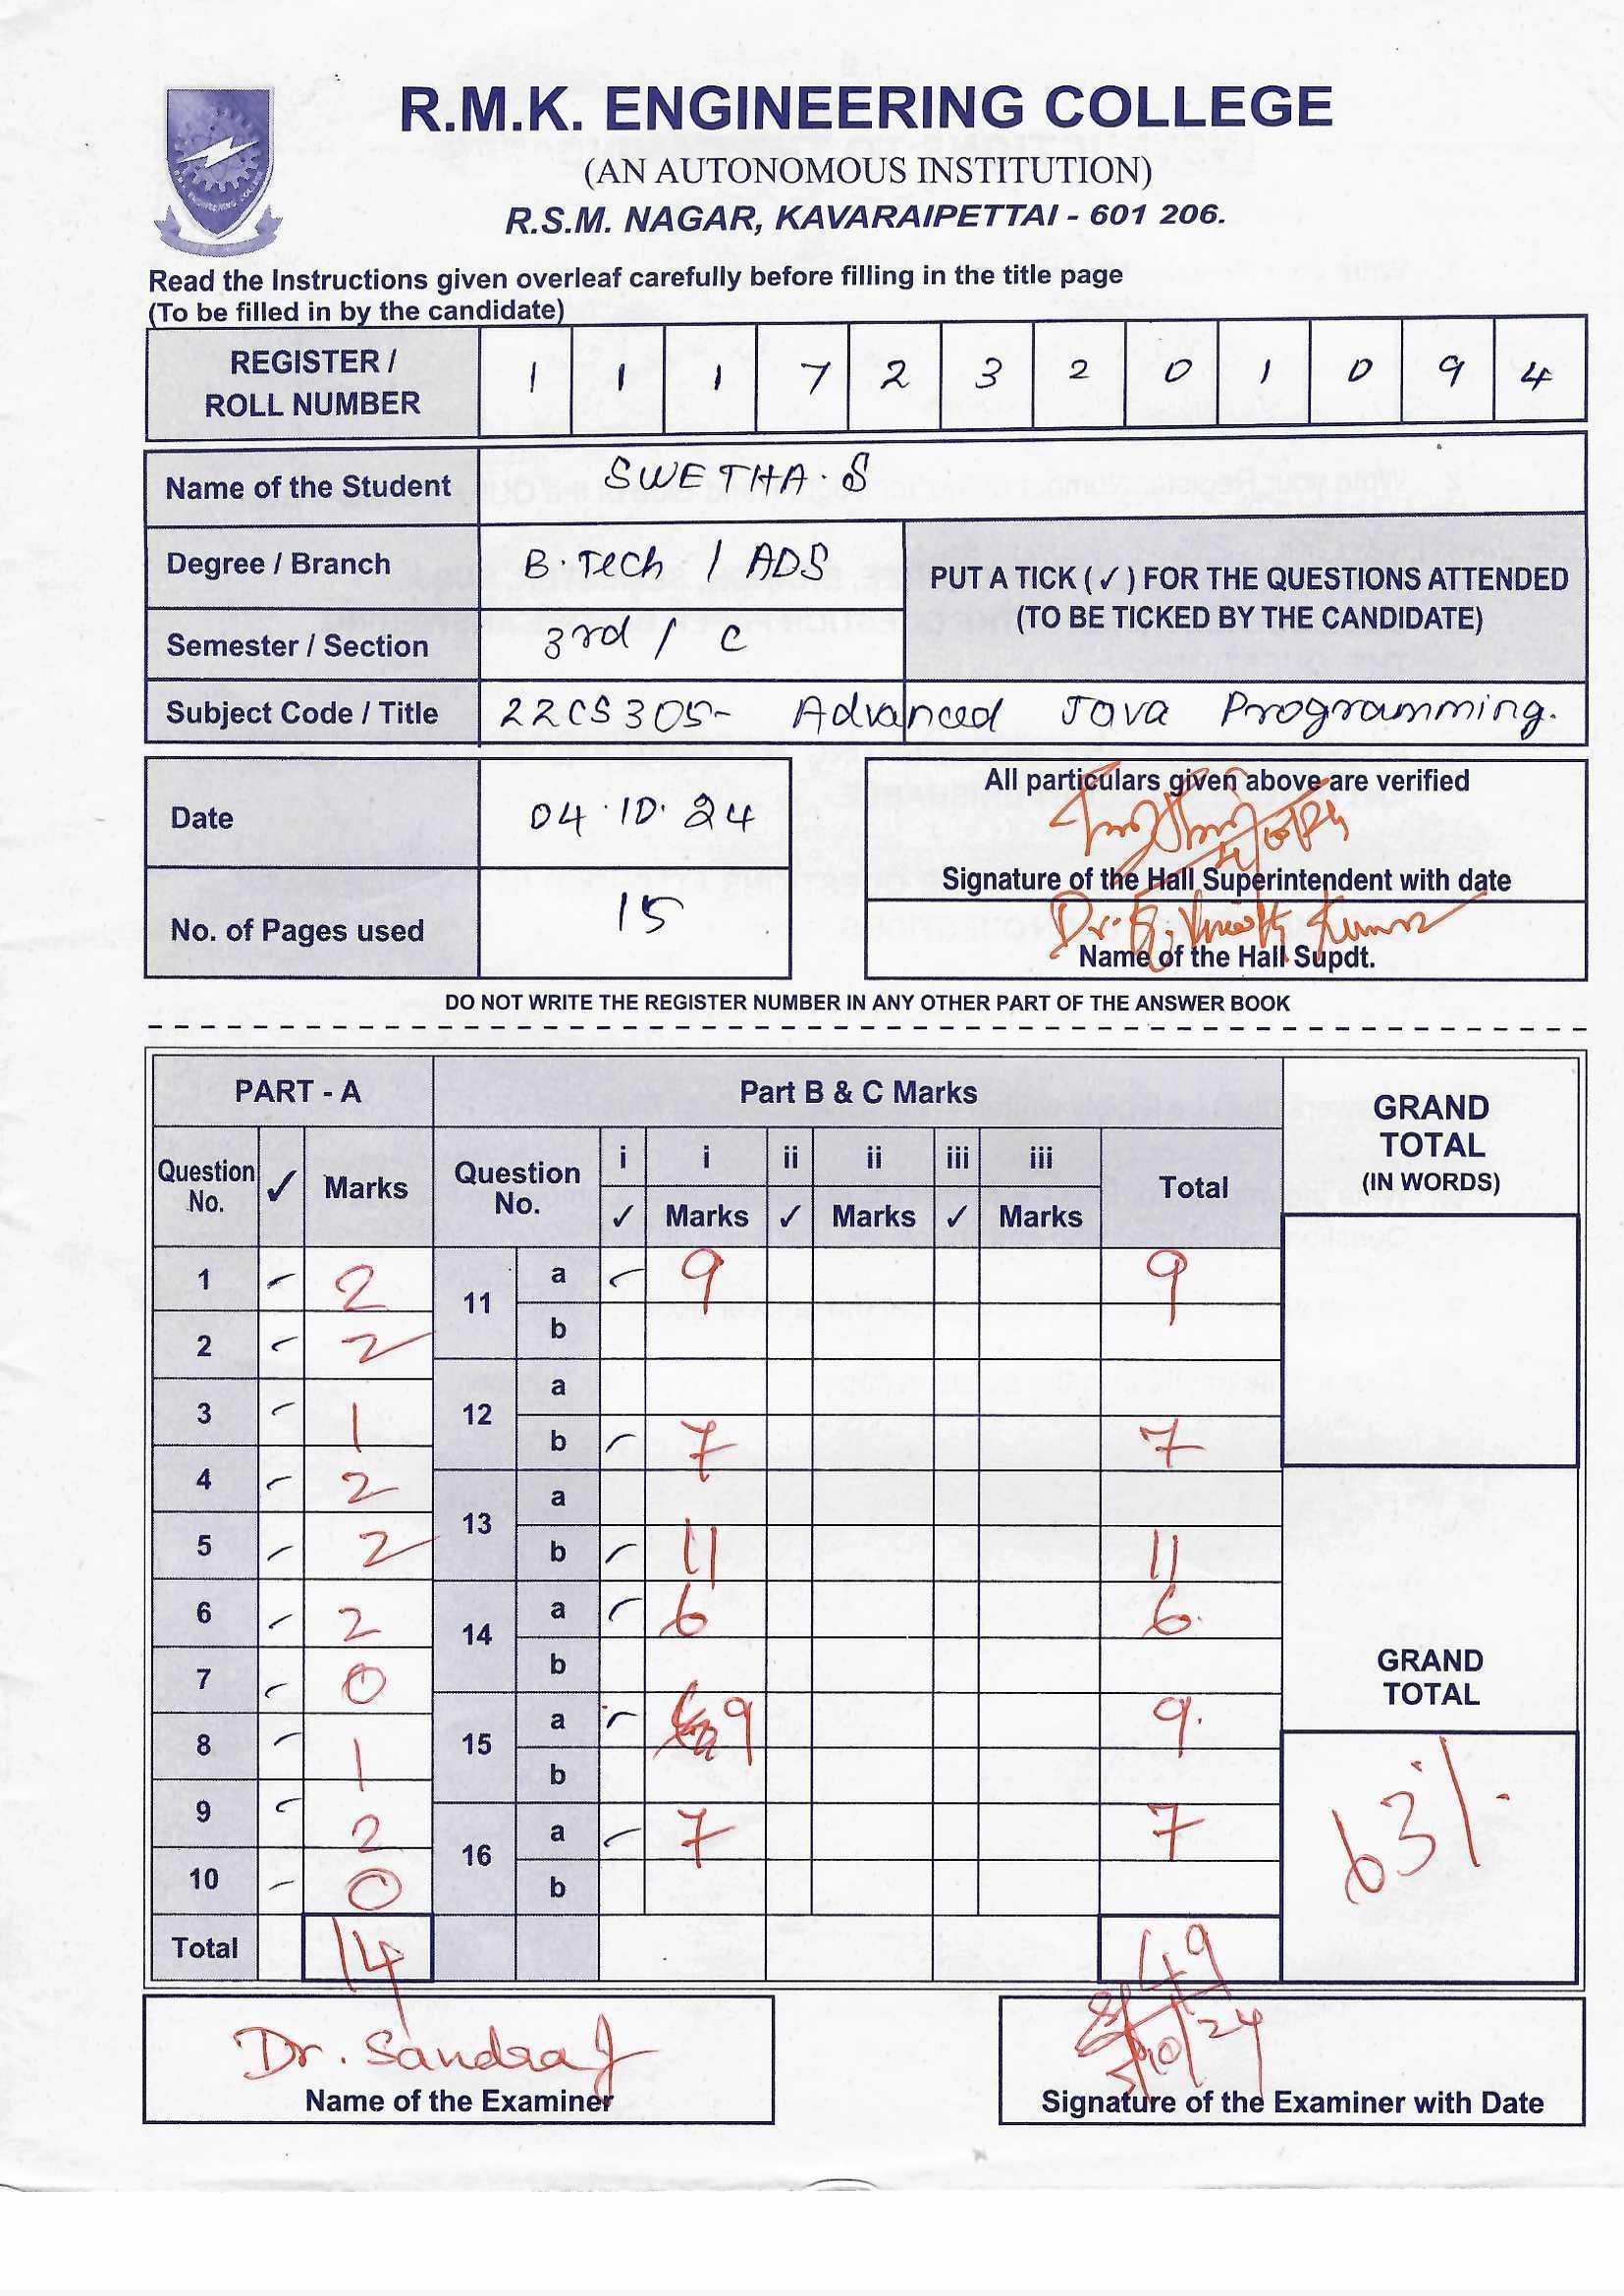 R.M.K. ENGINEERING COLLEGE
(AN AUTONOMOUS INSTITUTION)
R.S.M. NAGAR, KAVARAIPETTAI - 601 206.
R.M.K. ENGINEERING COLLEGE
Read the Instructions given overleaf carefully before filling in the title page
(To be filled in by the candidate)
REGISTER / ROLL NUMBER 1 1 1 7 2 3 2 0 1 0 9 4
Name of the Student SWETHA. S
Degree / Branch B.Tech / ADS
PUT A TICK ( ✓ ) FOR THE QUESTIONS ATTENDED
(TO BE TICKED BY THE CANDIDATE)
Semester / Section 3rd / C
Subject Code / Title 22CS305- Advanced Java Programming.
Date 04.10.24
All particulars given above are verified
Signature of the Hall Superintendent with date
No. of Pages used 15
Dr. Kumar
Name of the Hall Supdt.
DO NOT WRITE THE REGISTER NUMBER IN ANY OTHER PART OF THE ANSWER BOOK
PART - A Part B & C Marks GRAND TOTAL (IN WORDS)
Question No. ✓ Marks Question No. i i ii ii iii iii Total
✓ Marks ✓ Marks ✓ Marks
1 ✓ 2 11 a ✓ 9 9
b
2 ✓ 2
3 ✓ 1 12 a
b ✓ 7 7
4 ✓ 2 13 a
5 ✓ 2 b ✓ 11 11
6 ✓ 2 14 a ✓ 6 6.
7 ✓ 0 b
GRAND TOTAL
8 ✓ 1 15 a ✓ 9 9.
b
63%
9 ✓ 2 16 a ✓ 7 7
10 ✓ 0 b
Total 14 49
Dr. Sandra J
Name of the Examiner
10/24
Signature of the Examiner with Date